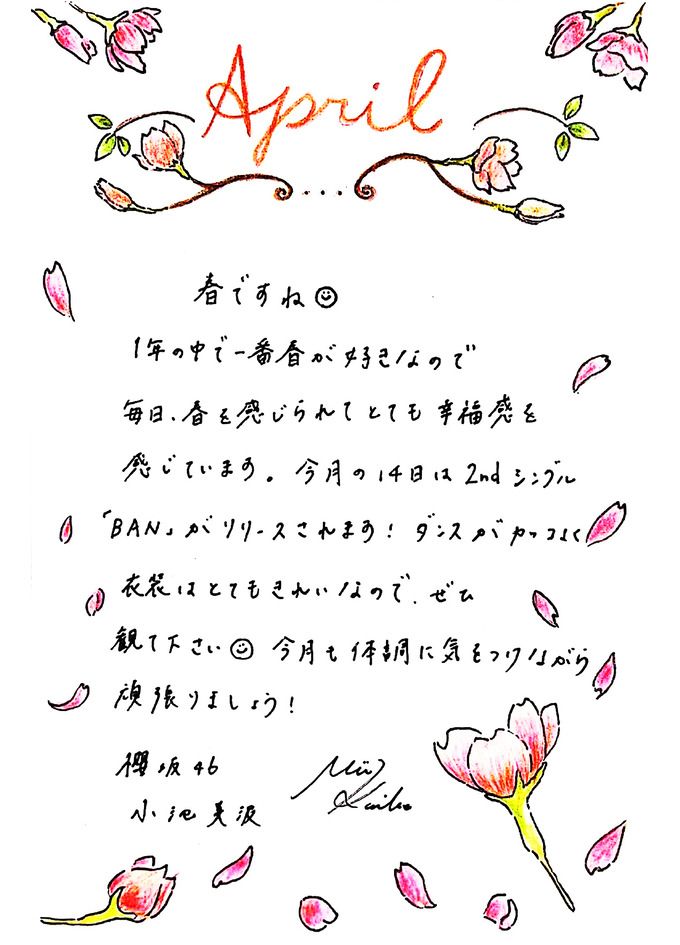 April
春ですね
1年の中で一番春が好きなので
毎日、春を感じられてとても幸福感を
感じています。今月の14日は2ndシングル
「BAN」がリリースされます！ダンスがカッコよく
衣装はとてもきれいなので、ぜひ
観て下さい 今月も体調に気をつけながら
頑張りましょう！
櫻坂46
小池美波